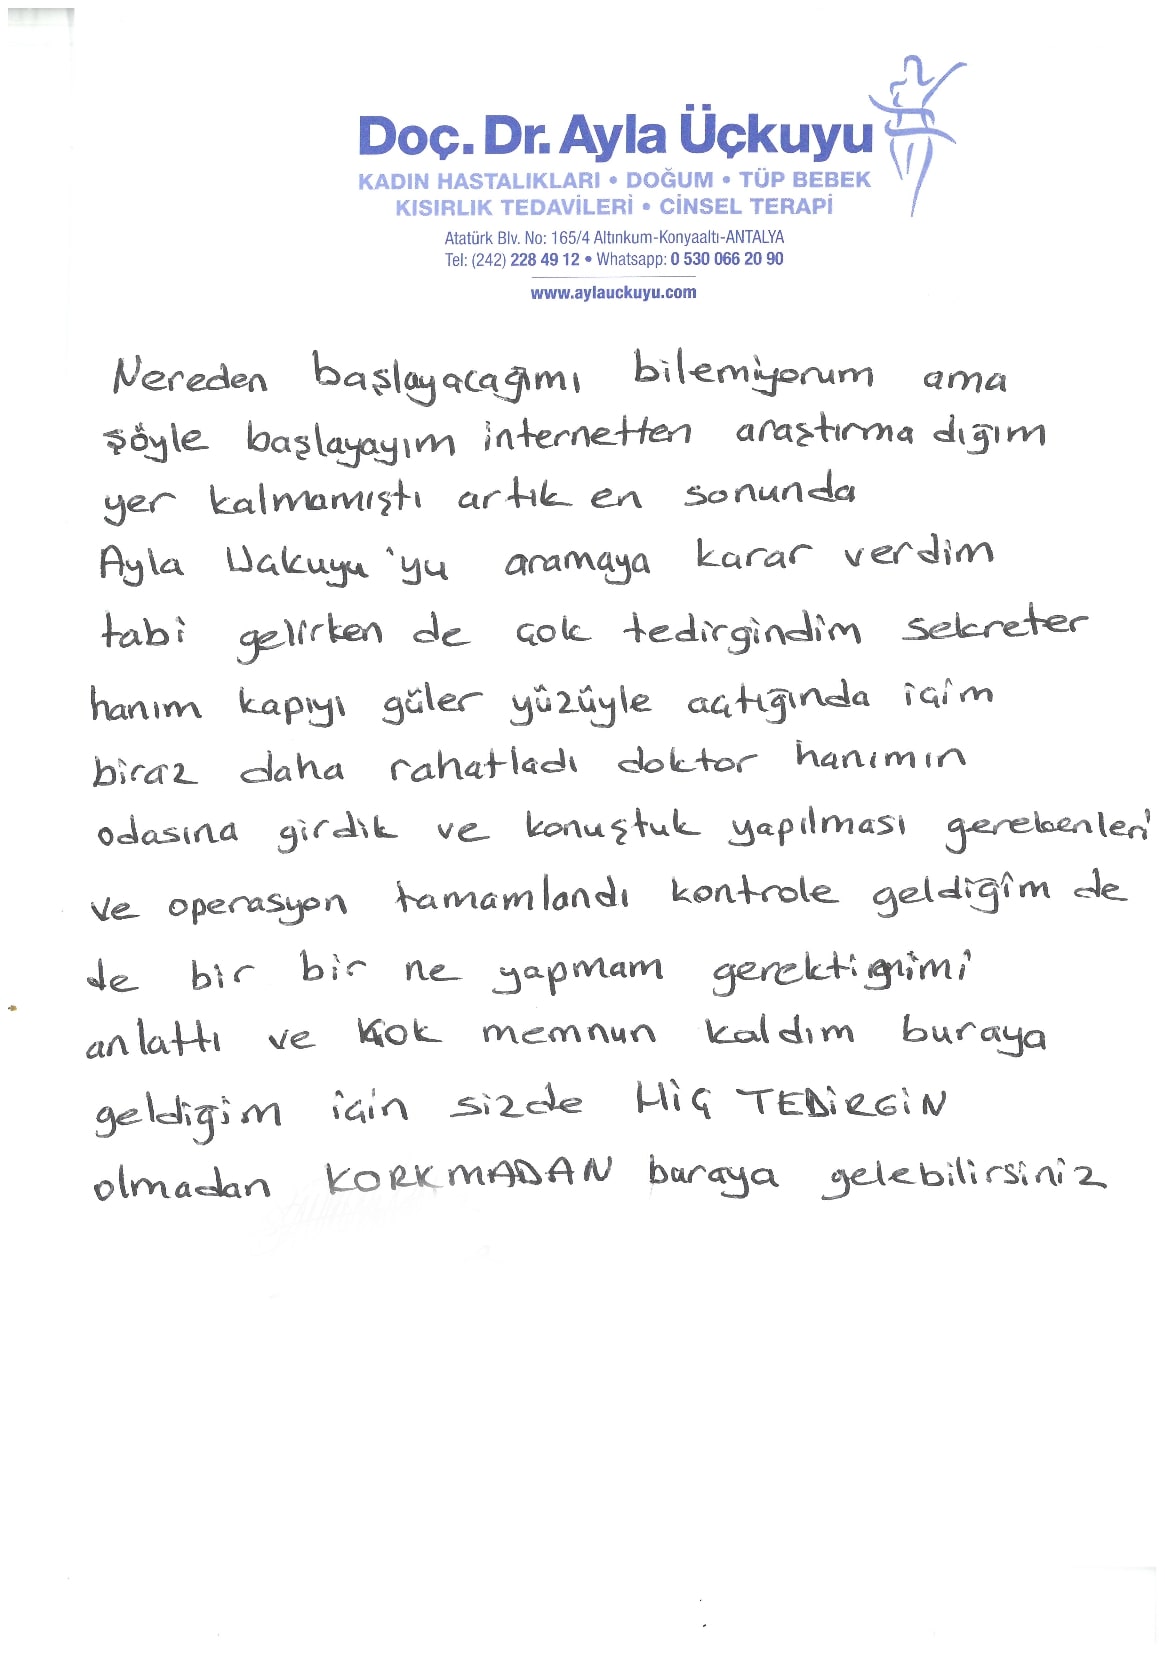 Doç. Dr. Ayla Üçkuyu
KADIN HASTALIKLARI • DOĞUM • TÜP BEBEK
KISIRLIK TEDAVİLERİ • CİNSEL TERAPİ
Atatürk Blv. No: 165/4 Altınkum-Konyaaltı-ANTALYA
Tel: (242) 228 49 12 • Whatsapp: 0 530 066 20 90
www.aylauckuyu.com
Nereden başlayacağımı bilemiyorum ama
şöyle başlayayım internetten araştırma dığım
yer kalmamıştı artık en sonunda
Ayla Uakuyu'yu aramaya karar verdim
tabi gelirken de çok tedirgindim sekreter
hanım kapıyı güler yüzüyle açtığında içim
biraz daha rahatladı doktor hanımın
odasına girdik ve konuştuk yapılması gerekenleri
ve operasyon tamamlandı kontrole geldiğim de
de bir bir ne yapmam gerektiğimi
anlattı ve çok memnun kaldım buraya
geldiğim için sizde HiÇ TEDiRGiN
olmadan KORKMADAN buraya gelebilirsiniz